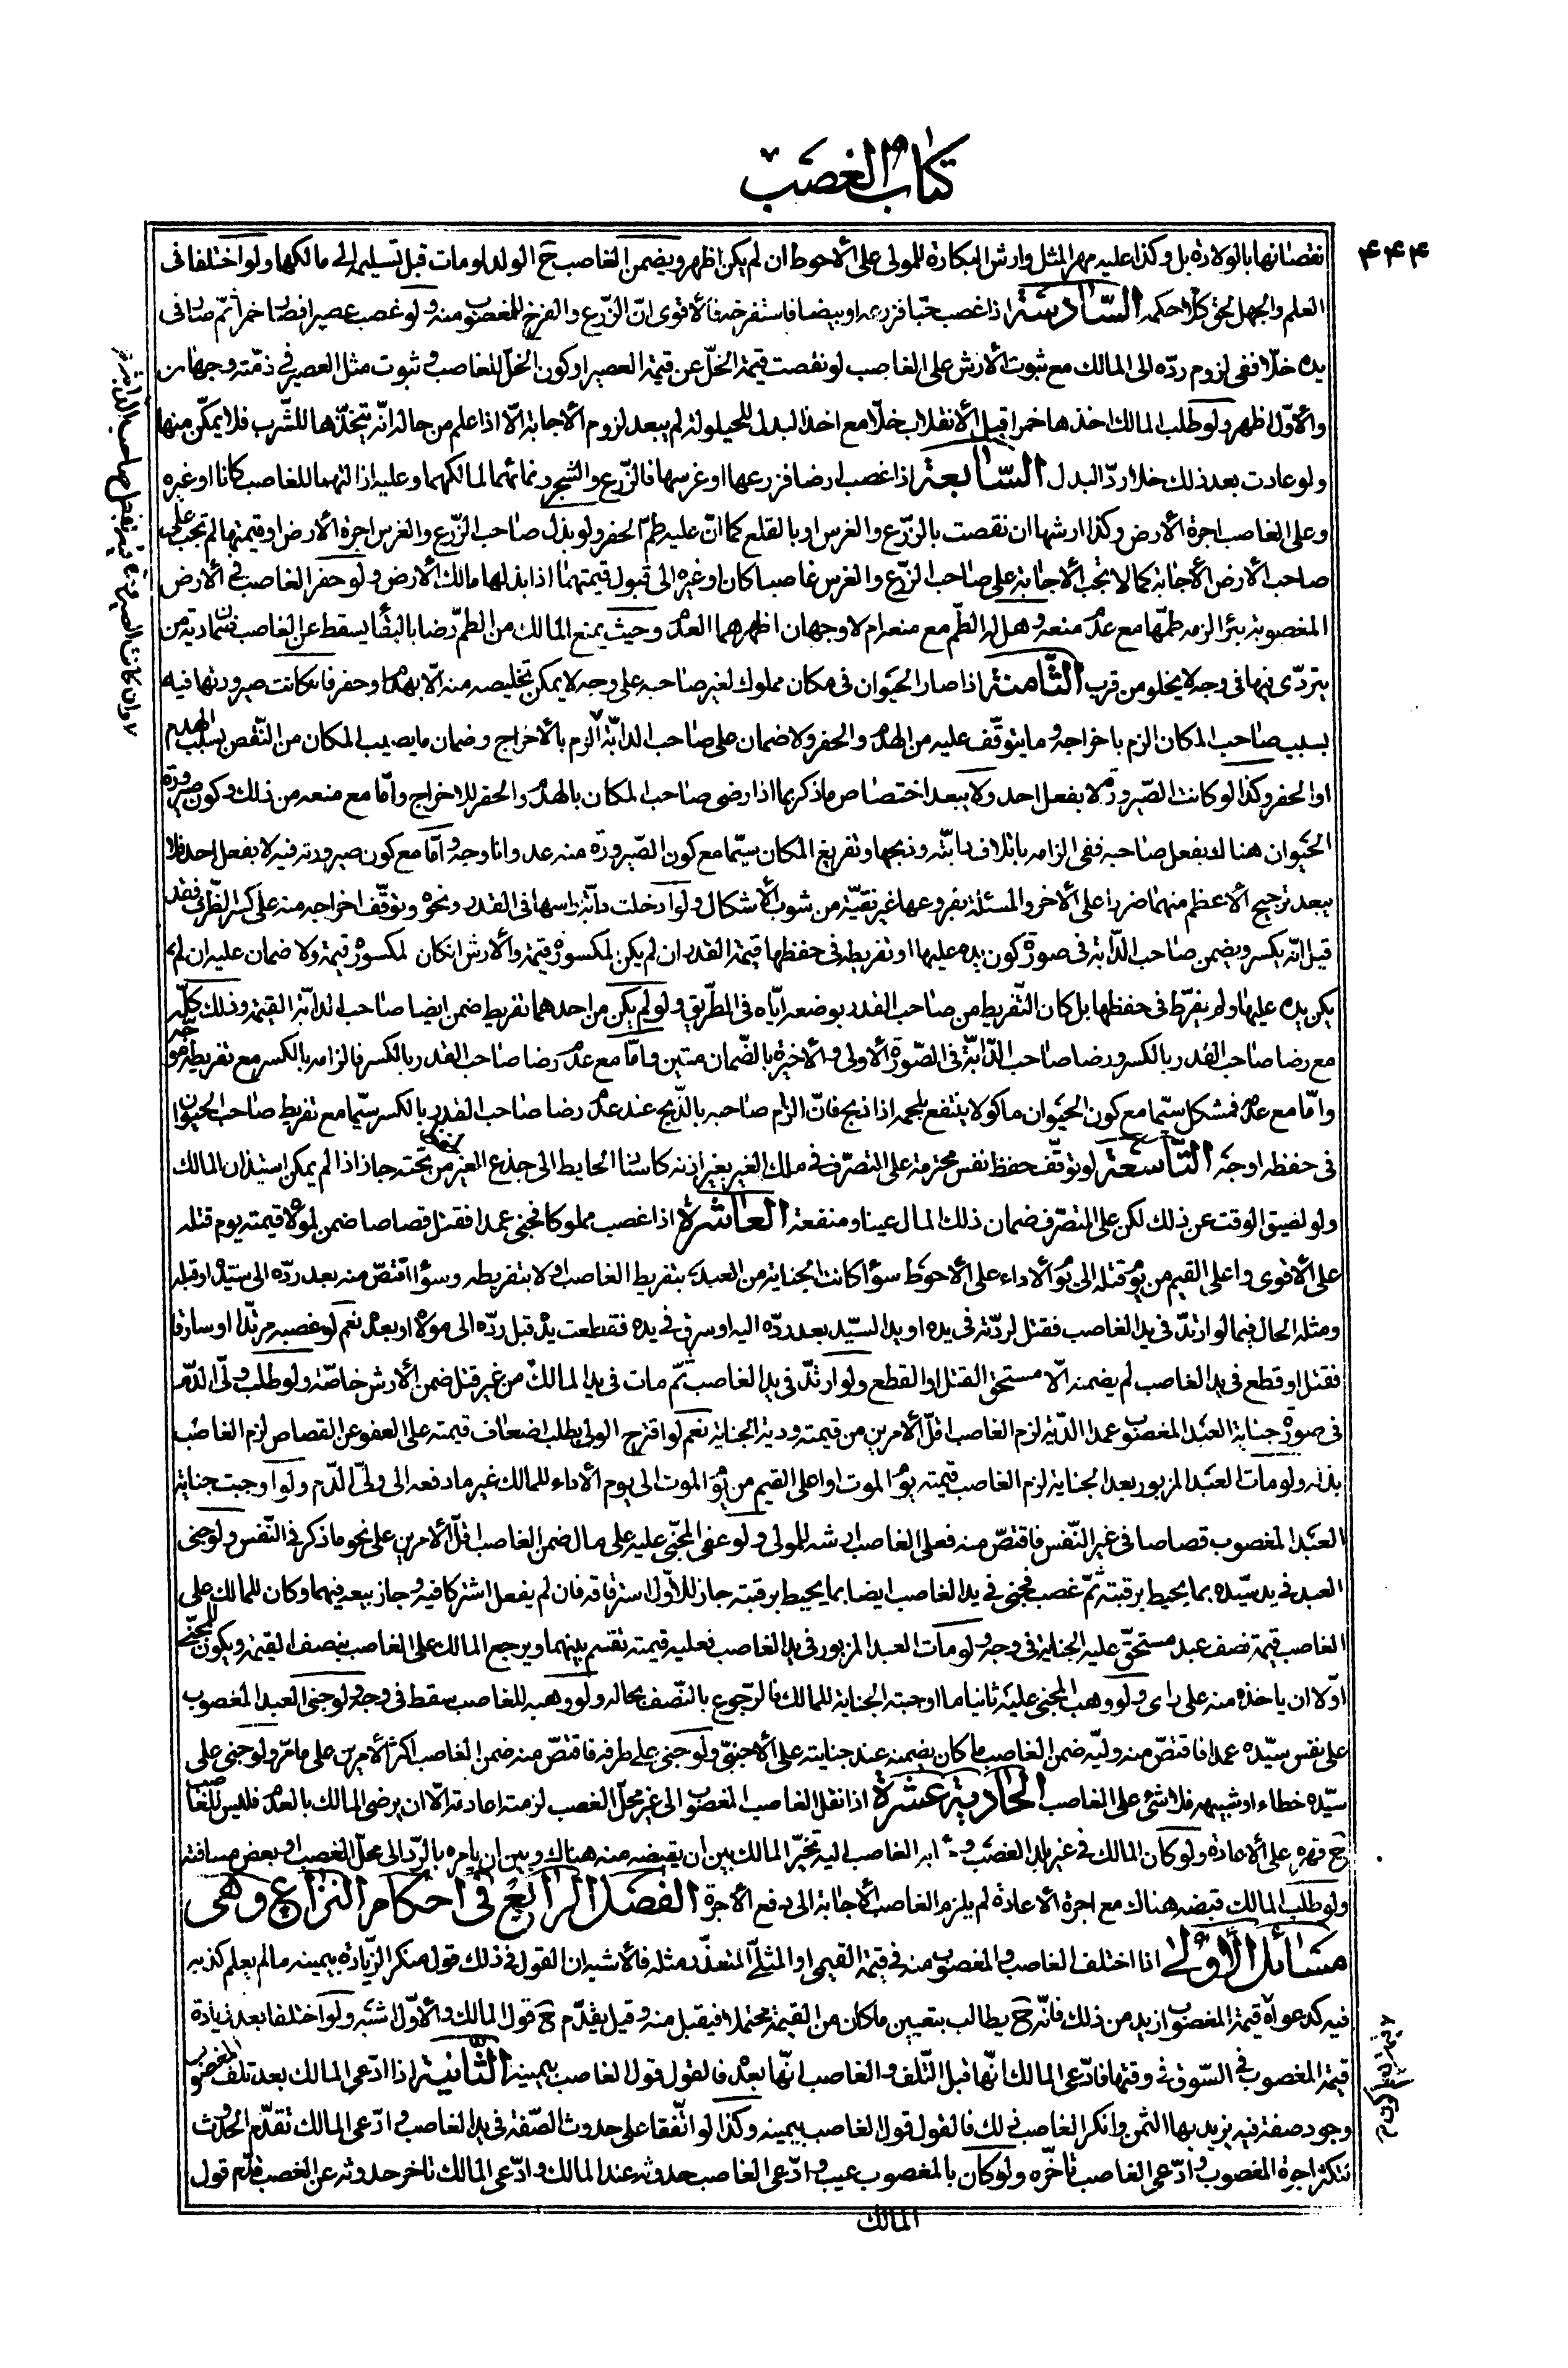 كتاب الغصب
۴۴۴
نقصانها بالولادة بل وكذا عليه مهر المثل وارش البكارة للمولى على الأحوط ان لم يكن اظهر ويضمن الغاصب ح الولد لو مات قبل تسليمه الى مالكها ولو اختلفا فى
العلم والجهل لحق كلا حكمه السّادسة اذا غصب حبّا فزرعه او بيضا فاستفرخه فالأقوى انّ الزّرع والفرخ للمغصوب منه ولو غصب عصيرا فصار خمرا ثم صار فى
يده خلّا ففى لزوم ردّه الى المالك مع ثبوت الأرش على الغاصب لو نقصت قيمة الخلّ عن قيمة العصير او كون الخلّ للغاصب و ثبوت مثل العصير فى ذمّته وجهان
والأوّل اظهر ولو طلب المالك اخذها خمرا قبل الأنقلاب خلّا مع اخذ البدل للحيلولة لم يبعد لزوم الأجابة الّا اذا علم من حاله انّه يتخذها للشّرب فلا يمكّن منها
ولو عادت بعد ذلك خلا ردّ البدل السّابعة اذا غصب ارضا فزرعها او غرسها فالزّرع والشجر ونمائهما لمالكهما وعليه ازالتهما للغاصب كانا او غيره
وعلى الغاصب اجرة الأرض وكذا ارشها ان نقصت بالزّرع والغرس او بالقلع كما انّ عليه طمّ الحفر ولو بذل صاحب الزّرع والغرس اجرة الأرض او قيمتها لم تجب على
صاحب الأرض الأجابة كما لا تجب الأجابة على صاحب الزّرع والغرس غاصبا كان او غيره الى قبول قيمتهما اذا بذلها مالك الأرض ولو حفر الغاصب فى الأرض
المغصوبة بئرا لزمه طمّها مع عدم منعه وهل له الطّم مع منعه ام لا وجهان اظهرهما العدم وحيث يمنع المالك من الطمّ رضا بالبقاء يسقط عن الغاصب ضمان دية من
يتردّى فيها فى وجه لا يخلو من قرب الثّامنة اذا صار الحيوان فى مكان مملوك لغير صاحبه على وجه لا يمكن تخليصه منه الّا بهدم او حفر فان كانت صيرورتها فيه
بسبب صاحب المكان الزم باخراجه وما يتوقّف عليه من الهدم والحفر ولا ضمان على صاحب الدابّة الزم بالأخراج وضمان ما يصيب المكان من النّقص بسبب الهدم
او الحفر وكذا لو كانت الصّيرورة لا بفعل احد ولا يبعد اختصاص ما ذكر بما اذا رضى صاحب المكان بالهدم والحفر للاخراج وامّا مع منعه من ذلك وكون صيرورة
الحيوان هناك بفعل صاحبه ففى الزامه باتلاف دابّته وذبحها وتفريغ المكان سيّما مع كون الصّيرورة منه عدوانا وجه وامّا مع كون صيرورته فيه لا بفعل احد فلا
يبعد ترجيح الأعظم منهما ضررا على الأخر والمسئلة بفروعها غير نقيّة من شوب الأشكال ولو ادخلت دابّة راسها فى القدر ونحوه وتوقّف اخراجه منه على كسر الظّرف فقد
قيل انّه يكسر ويضمن صاحب الدّابة فى صورة كون يده عليها او تفريطه فى حفظها قيمة القدر ان لم يكن لمكسوره قيمة والأرش ان كان لمكسوره قيمة ولا ضمان عليه ان لم
يكن يده عليها ولم يفرّط فى حفظها بل كان التّفريط من صاحب القدر بوضعه ايّاه فى الطّريق ولو لم يكن من احدهما تفريط ضمن ايضا صاحب الدابّة القيمة وذلك كلّه
مع رضا صاحب القدر بالكسر ورضا صاحب الدّابّة فى الصّورة الأولى والأخيرة بالضّمان متين وامّا مع عدم رضا صاحب القدر بالكسر فالزامه بالكسر مع تفريطه موجّه
وامّا مع عدمه فمشكل سيّما مع كون الحيوان ماكولا ينتفع بلحمه اذا ذبح فانّ الزام صاحبه بالذّبح عند عدم رضا صاحب القدر بالكسر سيّما مع تفريط صاحب الحيوان
فى حفظه اوجه التّاسعة لو توقّف حفظ نفس محترمة على التصرّف فى ملك الغير بغير اذنه كاسناد الحايط الى جذع الغير من تحته جاز اذا لم يمكن استيذان المالك
ولو لضيق الوقت عن ذلك لكن على المتصرّف ضمان ذلك المال عينا ومنفعة العاشرة اذا غصب مملوكا فجنى عمدا فقتل قصاصا ضمن لمولاه قيمته يوم قتله
على الأقوى واعلى القيم من يوم قتله الى يوم الأداء على الأحوط سواء كانت الجناية من العبد بتفريط الغاصب او لا بتفريطه وسواء اقتصّ منه بعد ردّه الى سيّده او قبله
ومثله الحال فيما لو ارتدّ فى يد الغاصب فقتل لردّته فى يده او يد السيّد بعد ردّه اليه او سرق فى يده فقطعت يده قبل ردّه الى مولاه او بعده نعم لو غصبه مرتدّا او سارقا
فقتل او قطع فى يد الغاصب لم يضمنه الّا مستحق القتل او القطع ولو ارتدّ فى يد الغاصب ثمّ مات فى يد المالك من غير قتل ضمن الأرش خاصّة ولو طلب ولىّ الدّم
فى صورة جناية العبد المغصوب عمدا الدّية لزم الغاصب اقلّ الأمرين من قيمته ودية الجناية نعم لو اقترح الولى بطلب اضعاف قيمته على العفو عن القصاص لزم الغاصب
بذله ولو مات العبد المزبور بعد الجناية لزم الغاصب قيمته يوم الموت او اعلى القيم من يوم الموت الى يوم الأداء للمالك غير ما دفعه الى ولىّ الدّم ولو اوجبت جناية
العبد المغصوب قصاصا فى غير النّفس فاقتصّ منه فعلى الغاصب ارشه للمولى ولو عفى المجنّى عليه على مال ضمن الغاصب اقلّ الأمرين على نحو ما ذكر فى النّفس ولو جنى
العبد فى يد سيّده بما يحيط برقبته ثمّ غصب فجنى فى يد الغاصب ايضا بما يحيط برقبته جاز للأوّل استرقاقه فان لم يفعل اشتركا فيه وجاز بيعه فيهما وكان للمالك على
الغاصب قيمة نصف عبد مستحقّ عليه الجناية فى وجه ولو مات العبد المزبور فى يد الغاصب فعليه قيمته تقسم بينهما ويرجع المالك على الغاصب بنصف القيمة ويكون للمجنّى
اوّلا ان ياخذه منه على راى ولو وهب المجنى عليه ثانيا ما اوجبته الجناية للمالك فالرّجوع بالنّصف بحاله ولو وهبه للغاصب سقط فى وجه ولو جنى العبد المغصوب
على نفس سيّده عمدا فاقتصّ منه وليّه ضمن الغاصب ما كان يضمنه عند جنايته على الأجنبىّ ولو جنى على طرفه فاقتصّ منه ضمن الغاصب اكثر الأمرين على ما مرّ ولو جنى على
سيّده خطاء او شبيهه فلا شئ على الغاصب الحادية عشرة اذا نقل الغاصب المغصوب الى غير محلّ الغصب لزمته اعادته الّا ان يرضى المالك بالعدم فليس للغاصب
ح قهره على الأعادة ولو كان المالك فى غير بلد الغصب الغاصب اليه تخيّر المالك بين ان يقبضه منه هناك وبين ان يامره بالرّد الى محلّ الغصب او بعض مسافته
ولو طلب المالك قبضه هناك مع اجرة الأعادة لم يلزم الغاصب الأجابة الى دفع الأجرة الفصل الرّابع فى احكام النزاع وهى
مسائل الأولى اذا اختلف الغاصب والمغصوب منه فى قيمة القيمى او المثلىّ المتعذّر مثله فالأشبه ان القول فى ذلك قول منكر الزّيادة بيمينه ما لم يعلم كذبه
فيه كدعواه قيمة المغصوب ازيد من ذلك فانّه ح يطالب بتعيين ما كان من القيمة محتملا فيقبل منه وقيل يقدّم ح قول المالك والأوّل اشبه ولو اختلفا بعد زيادة
قيمة المغصوب فى السّوق فى وقتها فادّعى المالك انّها قبل التّلف والغاصب انّها بعده فالقول قول الغاصب بيمينه الثّانية اذا ادّعى المالك بعد تلف المغصوب
وجود صفة فيه يزيد بها الثمن وانكر الغاصب ذلك فالقول قول الغاصب بيمينه وكذا لو اتّفقا على حدوث الصّفة فى يد الغاصب وادّعى المالك تقدّم الحدوث
لتكثر اجرة المغصوب وادّعى الغاصب تاخّره ولو كان بالمغصوب عيب وادّعى الغاصب حدوثه عند المالك وادّعى المالك تاخر حدوثه عن الغصب قدّم قول
المالك